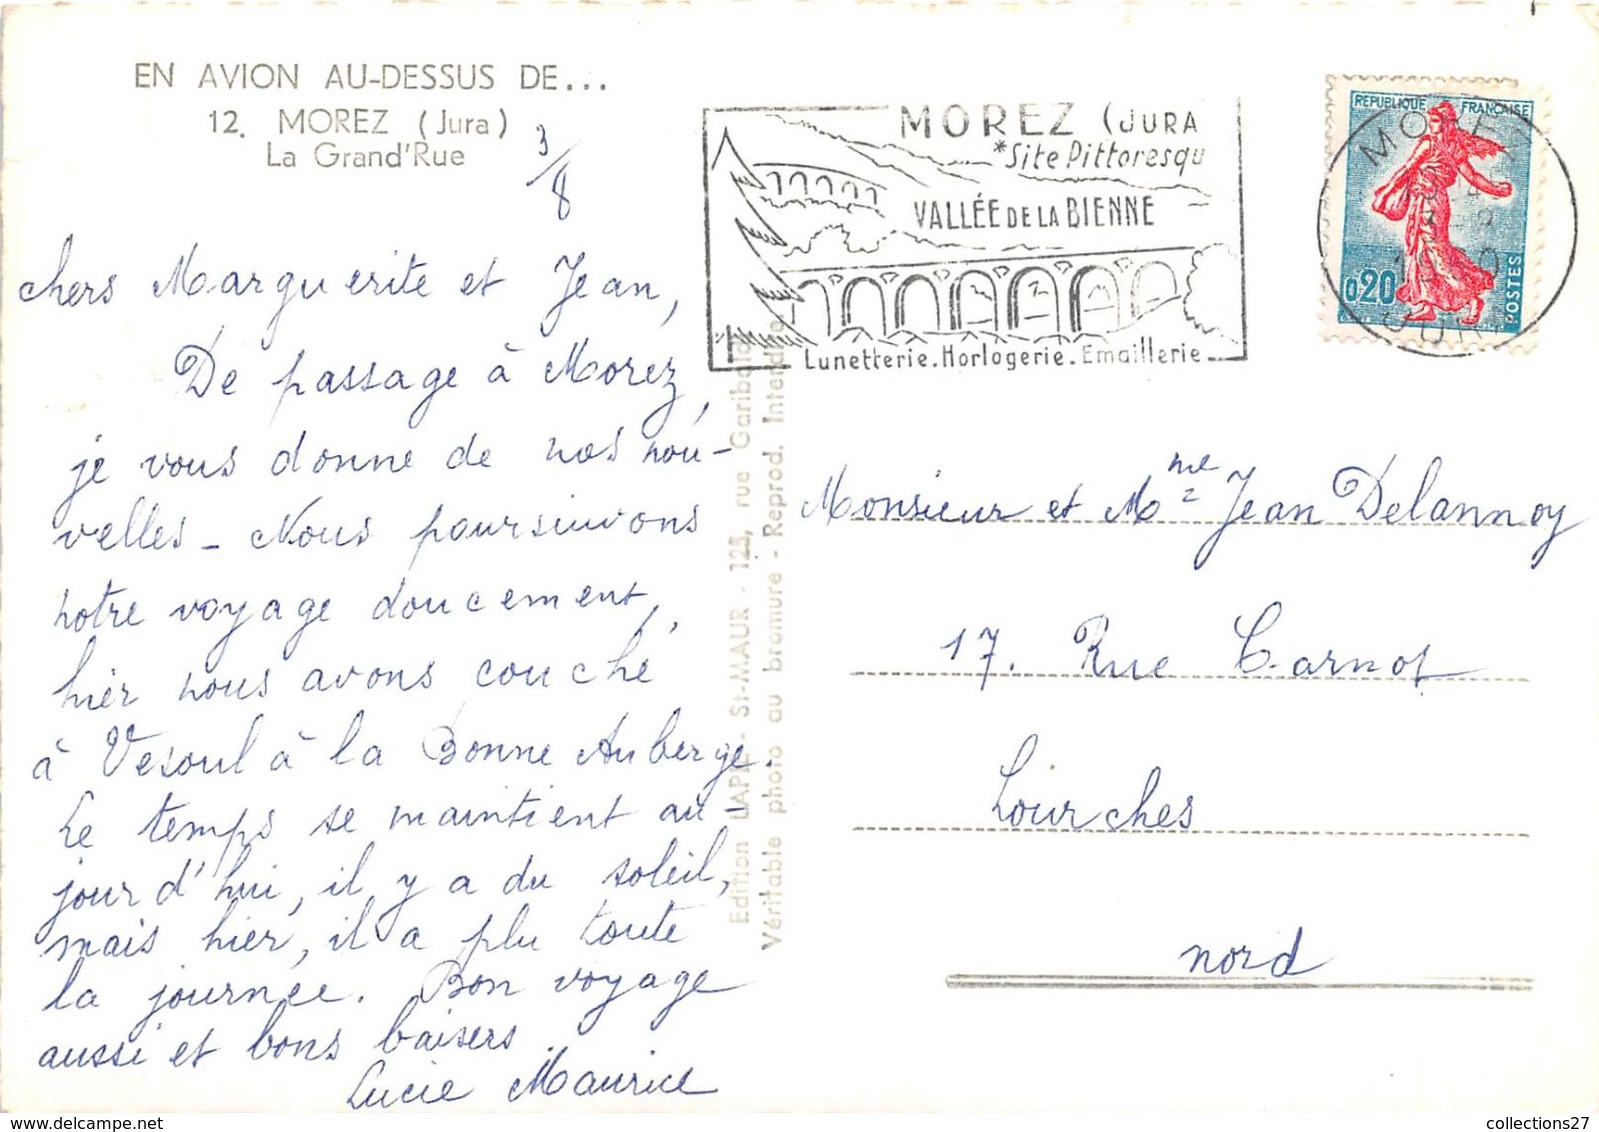 EN AVION AU-DESSUS DE...
12. MOREZ (Jura)
La Grand'Rue
3/8
chers Marguerite et Jean,
De passage à Morez,
je vous donne de nos nou-
velles - Nous poursuivons
notre voyage doucement,
hier nous avons couché
à Vesoul à la Bonne Auberge.
Le temps se maintient au-
jourd'hui, il y a du soleil,
mais hier, il a plu toute
la journée. Bon voyage
aussi et bons baisers
Lucie Maurice
Edition LAPIE - St-MAUR - 123, rue Garibaldi
Véritable photo au bromure - Reprod. Interdite
MOREZ (JURA
*Site Pittoresqu
VALLÉE DE LA BIENNE
Lunetterie. Horlogerie. Emaillerie
REPUBLIQUE FRANÇAISE
0,20
POSTES
MOREZ
JURA
Monsieur et Mme Jean Delannoy
17. Rue Carnot
Lourches
nord
collections27